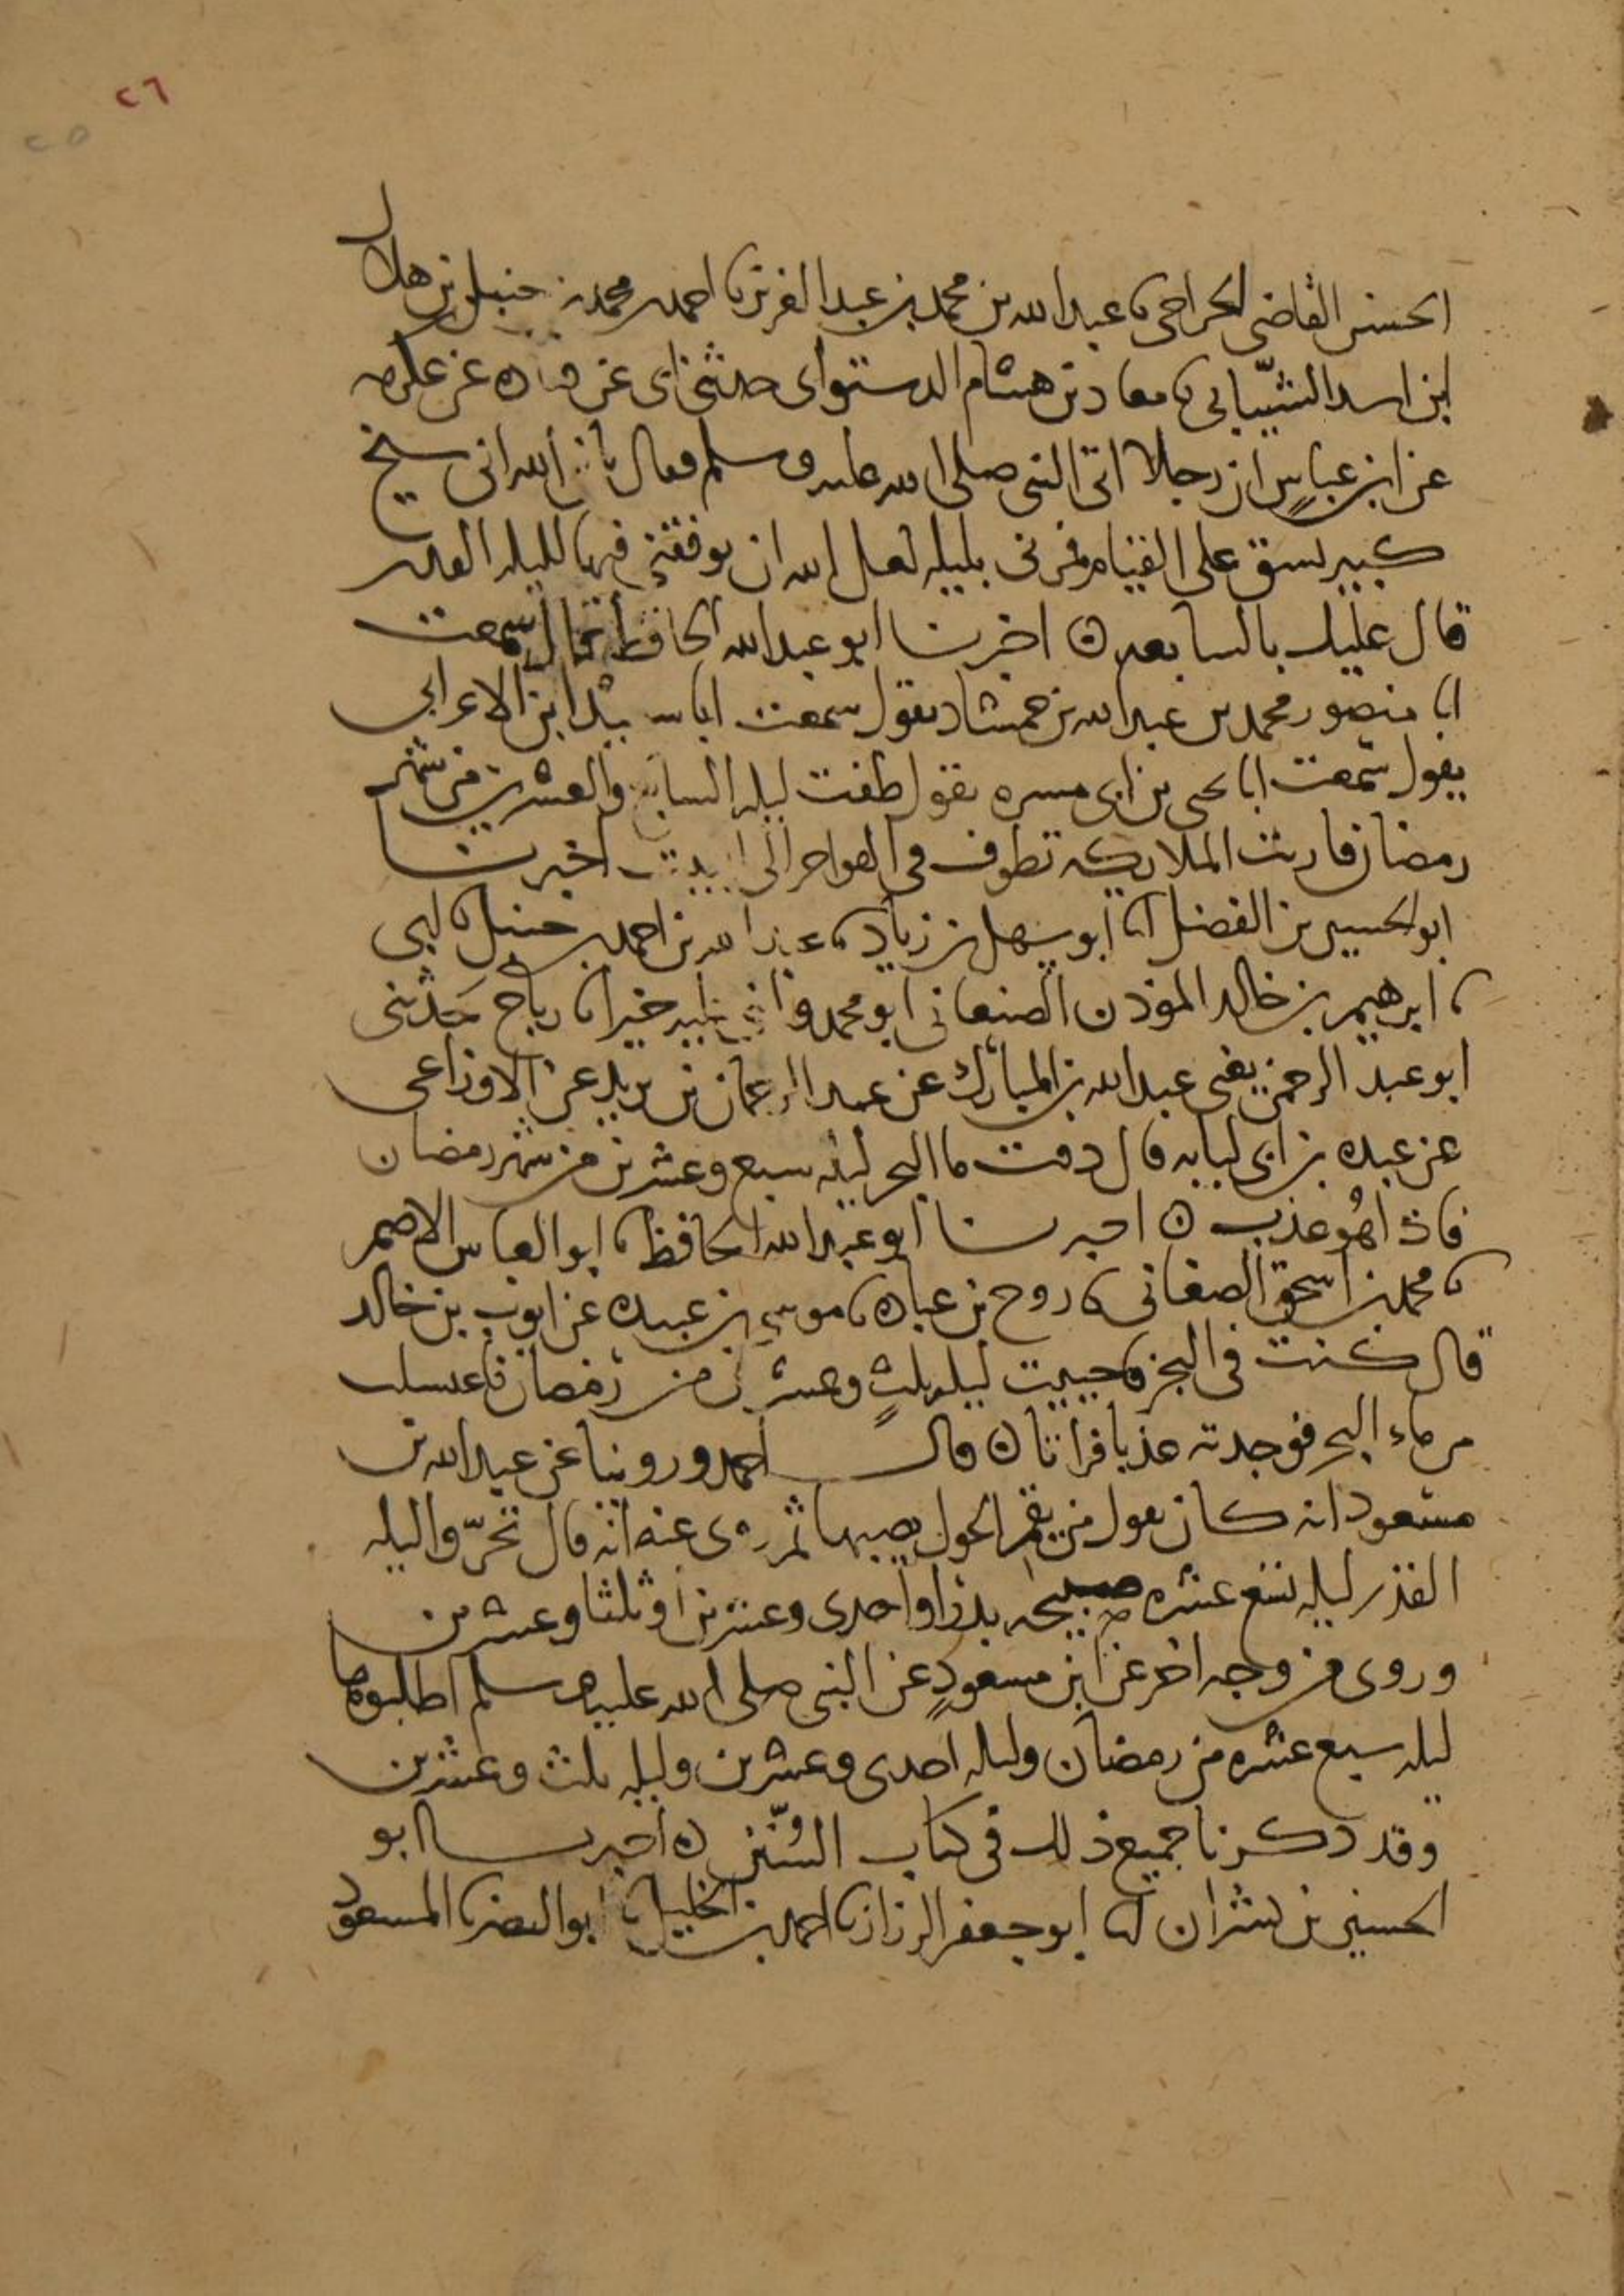 ٢٦
٢٥
الحسن القاضي الجراحي ثنا عبد الله بن محمد بن عبد العزيز ثنا احمد بن محمد بن حنبل بن هلال
ابن اسد الشيباني ثنا معاد بن هشام الدستواي حدثني ابي عن قتاده عن عكرمه
عن ابن عباسٍ ان رجلا اتى النبي صلى الله عليه وسلم فقال يا نبي الله اني شيخ
كبير يشق علي القيام فمرني بليله لعل الله ان يوفقني فيها لليله القدر
قال عليك بالسابعه ه اخبرنا ابو عبد الله الحافظ قال سمعت
ابا منصور محمد بن عبد الله بن حمشاد يقول سمعت ابا سعيد ابن الاعرابي
يقول سمعت ابا يحيى بن ابي مسره يقول طفت ليله السابع والعشرين من شهر
رمضان فاريت الملايكه تطوف في الهوا حوالي البيت اخبرنا
ابو الحسين بن الفضل انا ابو سهل بن زياد ثنا عبد الله بن احمد بن حنبل ثنا ابي
ثنا ابرهيم بن خالد الموذن الصنعاني ابو محمد خيرا ثنا رباح حَدثني
ابو عبد الرحمن يعني عبد الله بن المبارك عن عبد الرحمان بن يزيد عن الاوزاعي
عن عبده بن ابي لبابه قال ذقت ما البحر ليله سبع وعشرين من شهر رمضان
فاذا هُو عذب ه اخبرنا ابو عبد الله الحافظ ثنا ابو العباس الاصم
ثنا محمد بن اسحق الصغاني ثنا روح بن عباده ثنا موسى بن عبيده عن ايوب بن خالد
قال كنت في البحر فاجنبت ليله ثلثٍ وعشرين من رمضان فاغتسلت
من ماء البحر فوجدته عذبا فراتا ه قال احمد وروينا عن عبد الله بن
مسعود انه كان يقول من يقم الحول يصبها ثم روي عنه انه قال تحرّوا ليله
القدر ليله تسع عشره صبيحه بدرٍ او احدى وعشرين او ثلثا وعشرين
وروي من وجه اخر عن ابن مسعودٍ عن النبي صلى الله عليه وسلم اطلبوها
ليله سبع عشره من رمضان وليله احدى وعشرين وليله ثلث وعشرين
وقد ذكرنا جميع ذلك في كتاب السُّنن ه اخبرنا ابو
الحسين بن بشران انا ابو جعفر الرزاز ثنا احمد بن الخليل ثنا ابو النضر ثنا المسعودي